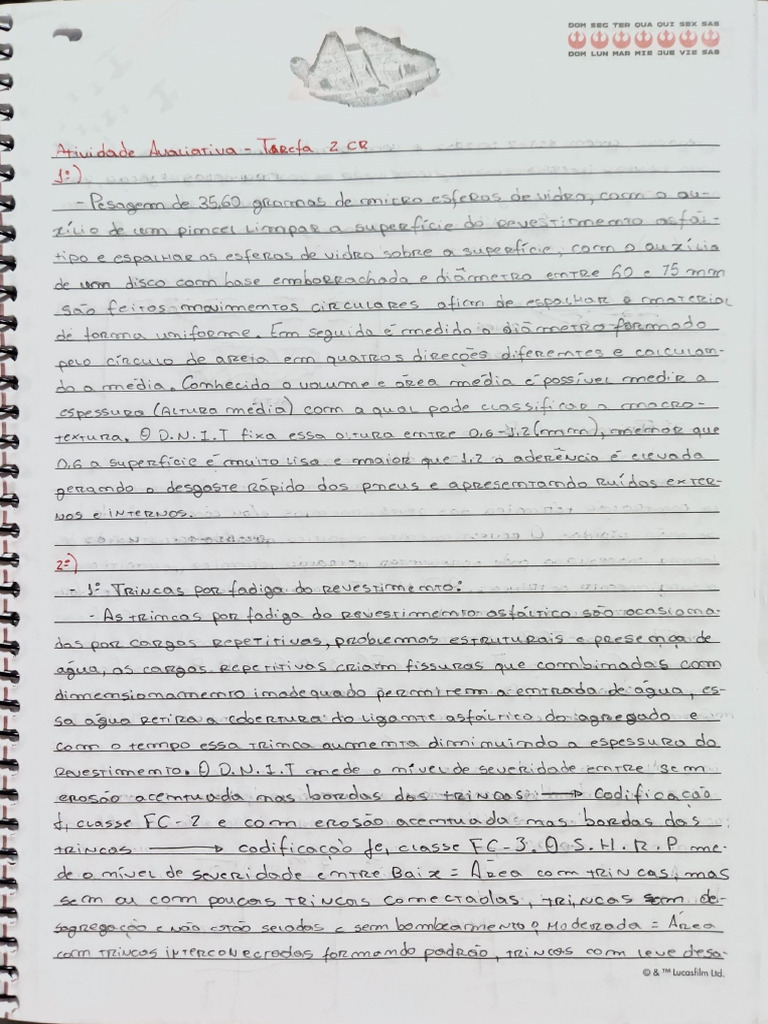 DOM SEG TER QUA QUI SEX SAB
DOM LUN MAR MIE JUE VIE SAB
Atividade Avaliativa - Tarefa 2 CR
1º)
- Pesagem de 35,60 gramas de micro esferas de vidro, com o au-
xílio de um pincel limpar a superfície do revestimento asfál-
tipo e espalhar as esferas de vidro sobre a superfície, com o auxílio
de um disco com base emborrachada e diâmetro entre 60 e 75 mm
são feitos movimentos circulares afim de espalhar o material
de forma uniforme. Em seguida é medido o diâmetro formado
pelo círculo de areia em quatros direções diferentes e calculan-
do a média. Conhecido o volume e área média é possível medir a
espessura (Altura média) com a qual pode classificar a macro-
textura. O D.N.I.T fixa essa altura entre 0,6-1,2 (mm), menor que
0,6 a superfície é muito lisa e maior que 1,2 a aderência é elevada
gerando o desgaste rápido dos pneus e apresentando ruídos exter-
nos e internos.
2º)
- 1º Trincas por fadiga do revestimento:
- As trincas por fadiga do revestimento asfáltico são ocasiona-
das por cargas repetitivas, problemas estruturais e presença de
água, as cargas repetitivas criam fissuras que combinadas com
dimensionamento inadequado permitem a entrada de água, es-
sa água retira a cobertura do ligante asfáltico do agregado e
com o tempo essa trinca aumenta diminuindo a espessura do
revestimento. O D.N.I.T mede o nível de severidade entre sem
erosão acentuada nas bordas das trincas → Codificação
J, classe FC-2 e com erosão acentuada nas bordas das
trincas → codificação Je, classe FC-3. O S.H.R.P me-
de o nível de severidade entre Baix = Área com trincas, mas
sem ou com poucas trincas conectadas, trincas sem de-
sagregação e não estão seladas e sem bombeamento, Moderada = Área
com trincas interconectadas formando padrão, trincas com leve desa-
© & ™ Lucasfilm Ltd.